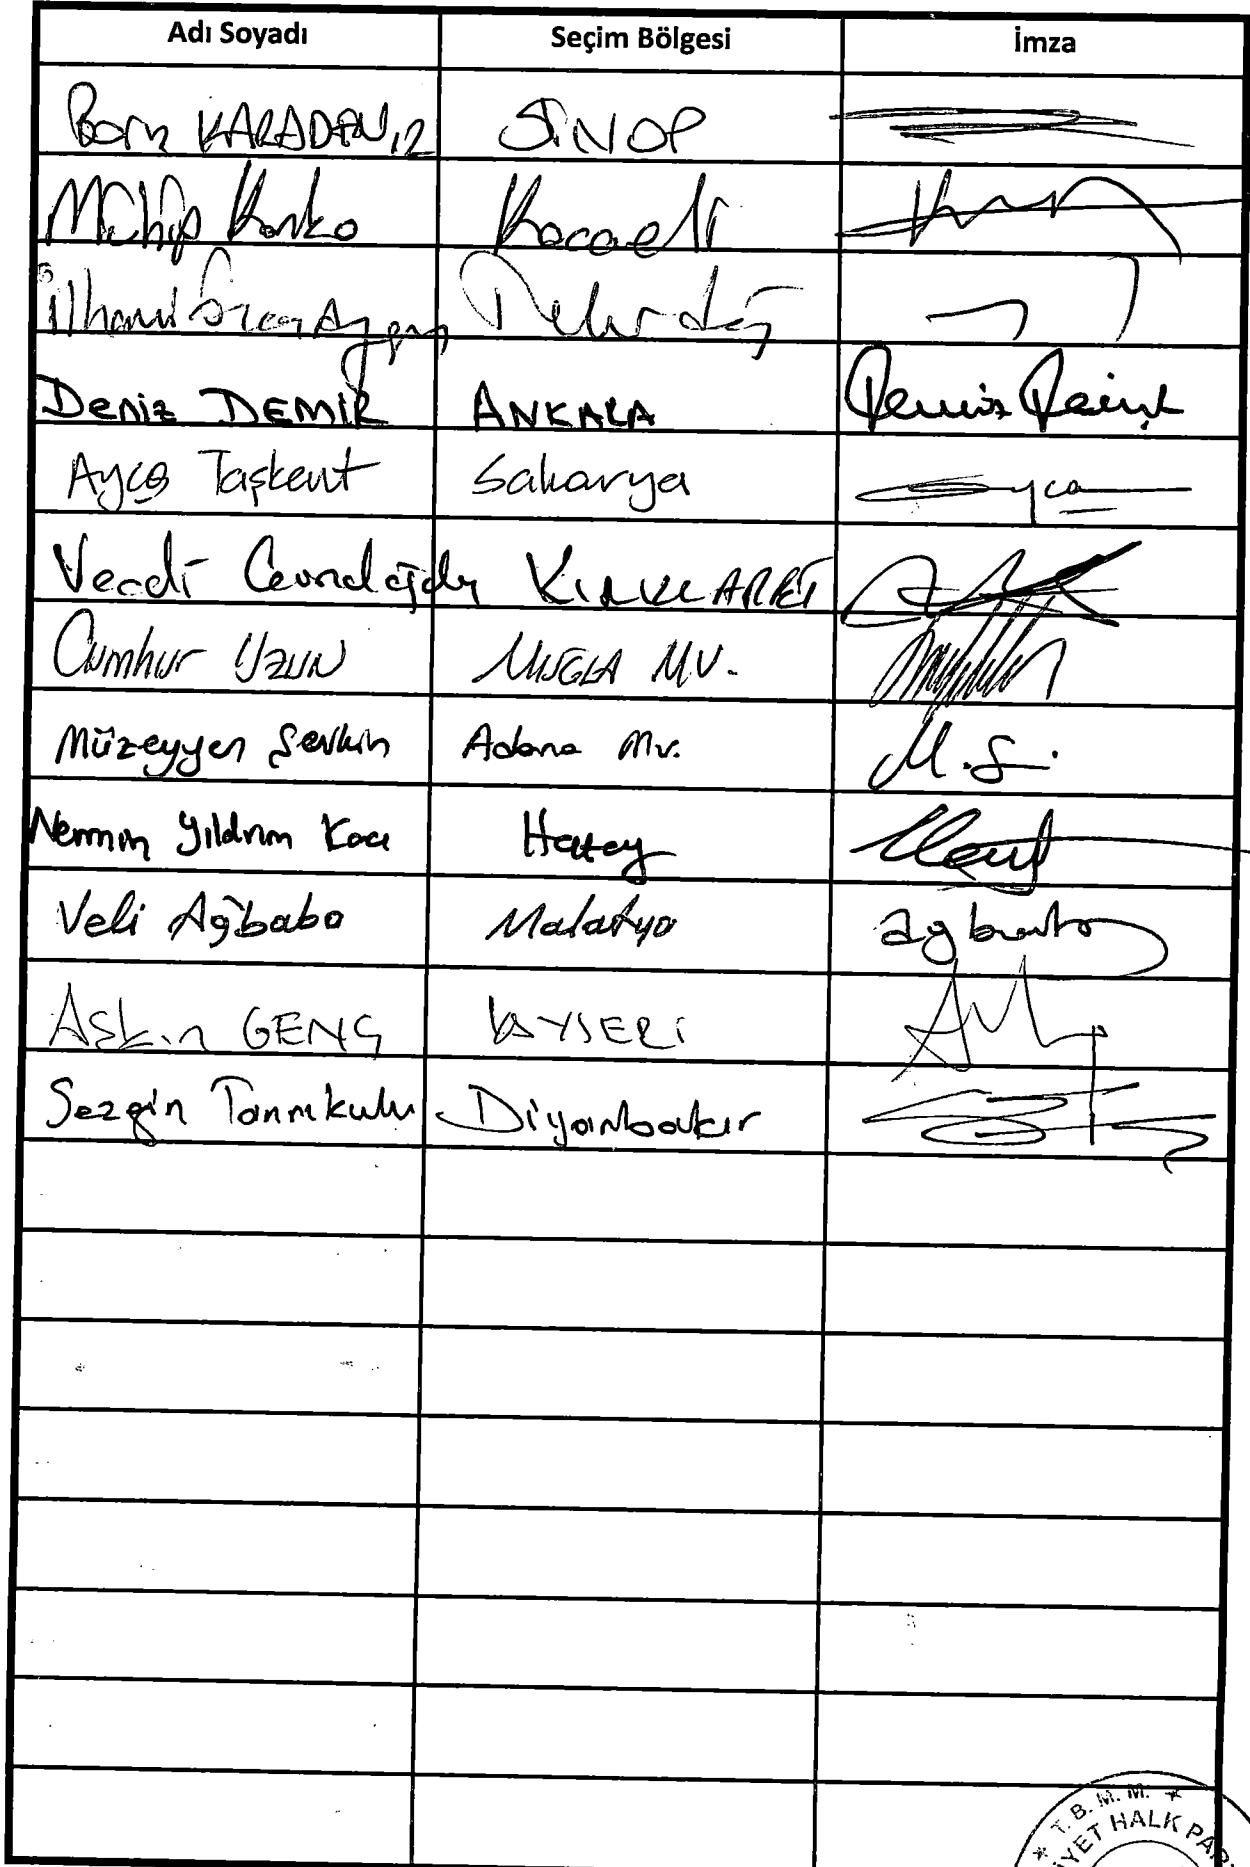 Adı Soyadı Seçim Bölgesi İmza
Barış KARADENİZ SİNOP
Mühip Kanko Kocaeli
İlhami Özcan Aygun Tekirdağ
Deniz DEMİR ANKARA Deniz Demir
Ayça Taşkent Sakarya Ayça
Vecdi Gündoğdu KIRKLARELİ
Cumhur UZUN MUĞLA MV.
Müzeyyen Şevkin Adana Mv. M.Ş.
Nermin Yıldırım Kara Hatay
Veli Ağbaba Malatya agbaba
Aşkın GENÇ KAYSERİ
Sezgin Tanrıkulu Diyarbakır
T.B.M.M.
HALK